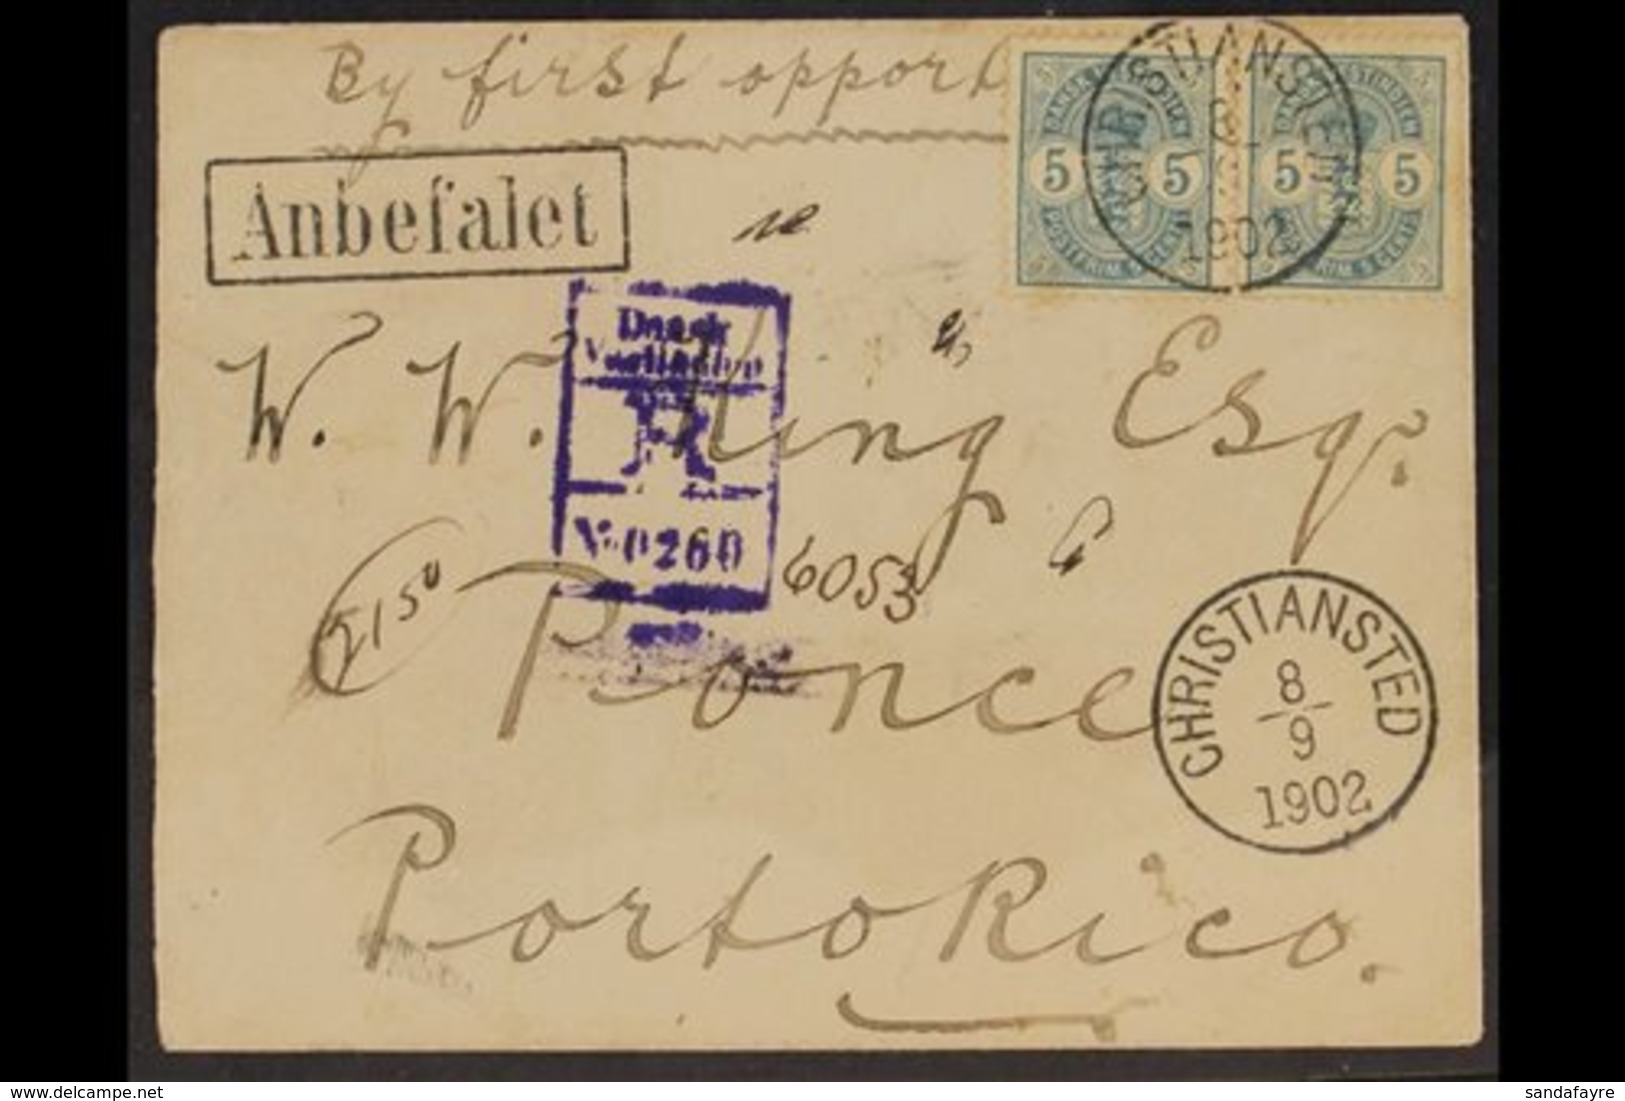 By first opport
Anbefalet
5 5 5 5
CHRISTIANSTED
1902
Dansk
Vestindien
R
No 0260
W. W. King Esq.
6053
Ponce
CHRISTIANSTED
8/9
1902
Porto Rico.
delcampe.net
sandafayre